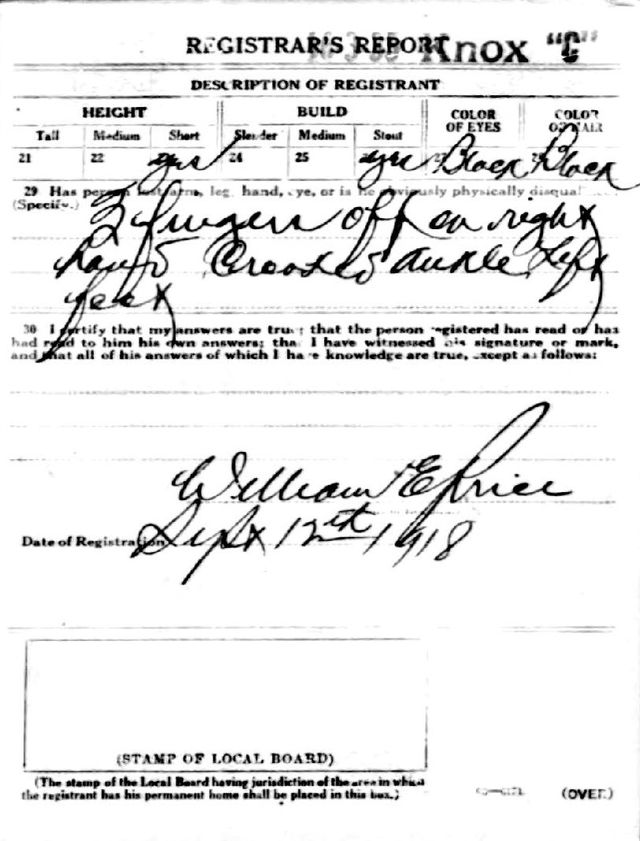 REGISTRAR'S REPORT Knox "C"
DESCRIPTION OF REGISTRANT
HEIGHT BUILD COLOR OF EYES COLOR OF HAIR
Tall Medium Short Slender Medium Stout
21 22 yes 24 25 yes Black Black
29 Has person lost arm, leg, hand, eye, or is he obviously physically disqual
(Specify.)
3 fingers off on right
hand Crooked Ankle Left
feet
30 I certify that my answers are true; that the person registered has read or has
had read to him his own answers; that I have witnessed his signature or mark,
and that all of his answers of which I have knowledge are true, except as follows:
William E Price
Date of Registration Sept 12th 1918
(STAMP OF LOCAL BOARD)
(The stamp of the Local Board having jurisdiction of the area in which
the registrant has his permanent home shall be placed in this box.)
(OVER)